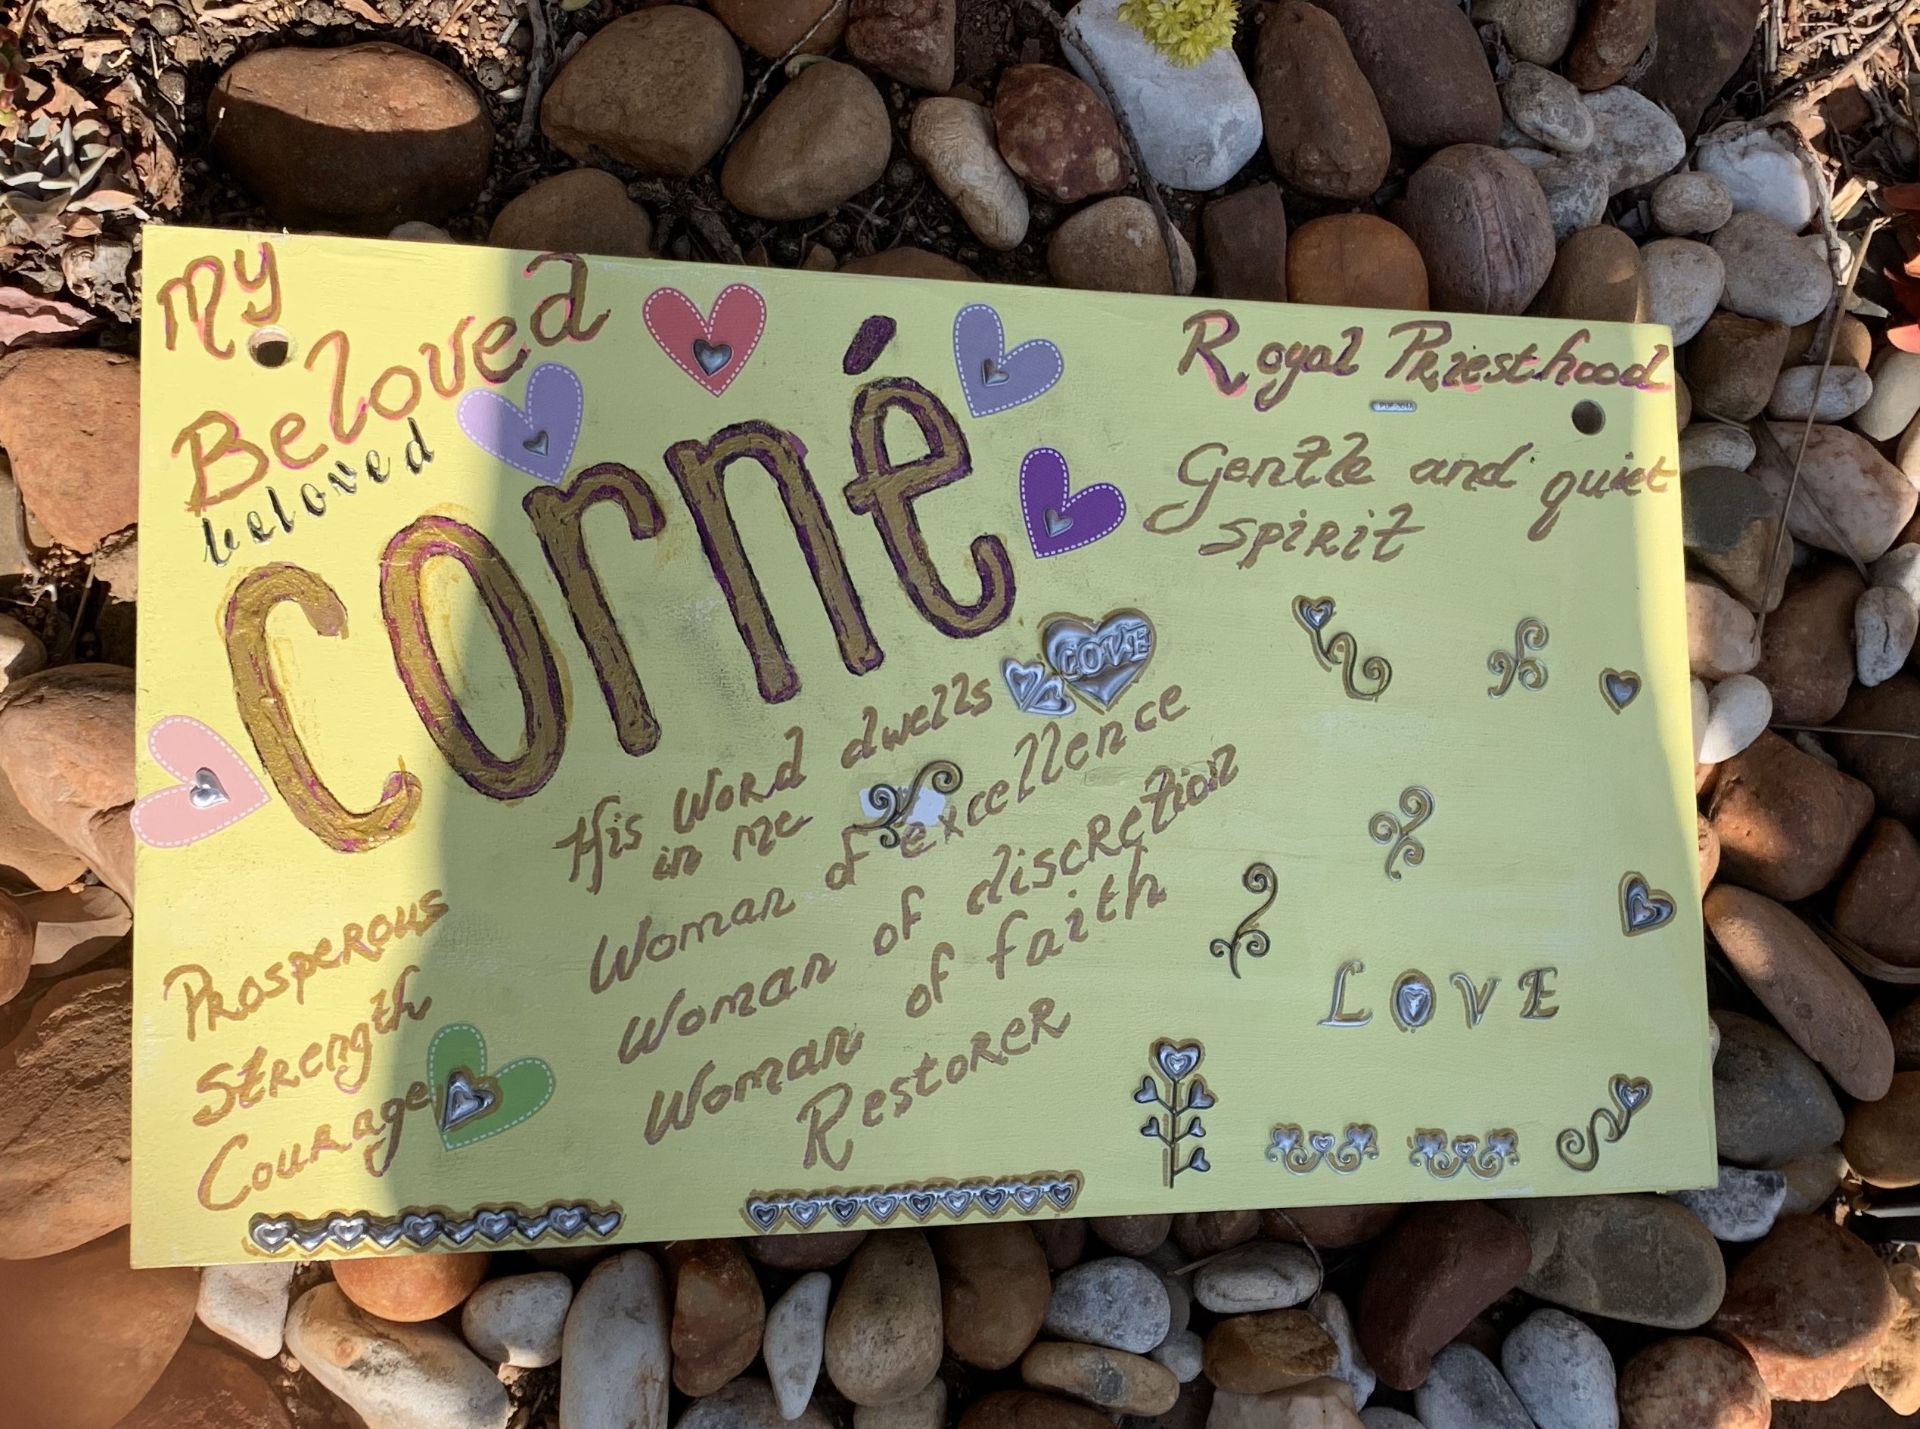 My
Beloved
beloved
corné
Royal Priesthood
Gentle and quiet
spirit
LOVE
His Word dwells
in me
Woman of excellence
Woman of discretion
Woman of faith
Restorer
Prosperous
Strength
Courage
LOVE